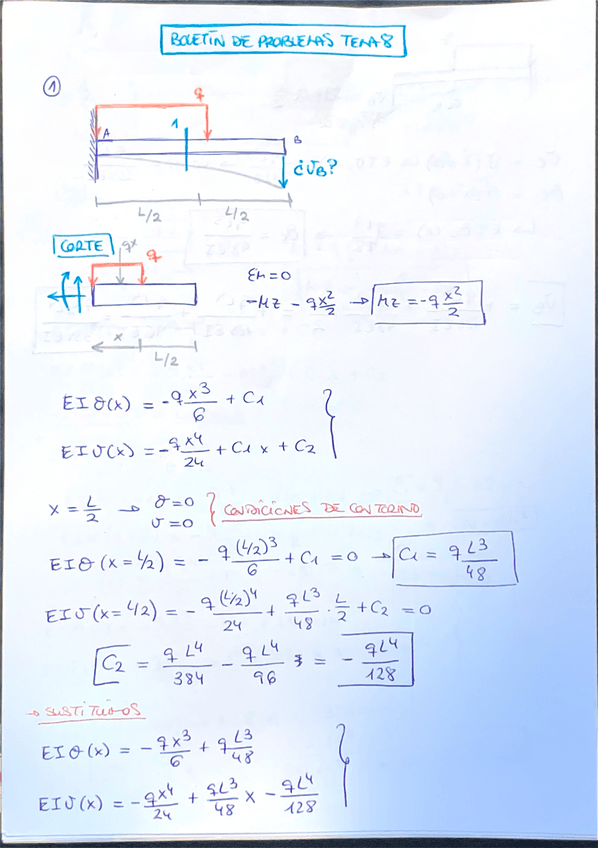 BOLETÍN DE PROBLEMAS TEMA 8
①
q
A 1 B
¿υB?
L/2 L/2
CORTE qx q
ΣM=0
-Mz - q x²/2 → Mz = -q x²/2
x L/2
EI θ(x) = -q x³/6 + C1
EI υ(x) = -q x⁴/24 + C1 x + C2
x = L/2 → θ=0
υ=0
CONDICIONES DE CONTORNO
EI θ(x = L/2) = - q (L/2)³/6 + C1 = 0 → C1 = q L³/48
EI υ(x = L/2) = - q (L/2)⁴/24 + qL³/48 · L/2 + C2 = 0
C2 = q L⁴/384 - q L⁴/96 = - qL⁴/128
→ SUSTITUIMOS
EI θ(x) = - qx³/6 + q L³/48
EI υ(x) = - qx⁴/24 + qL³/48 x - qL⁴/128